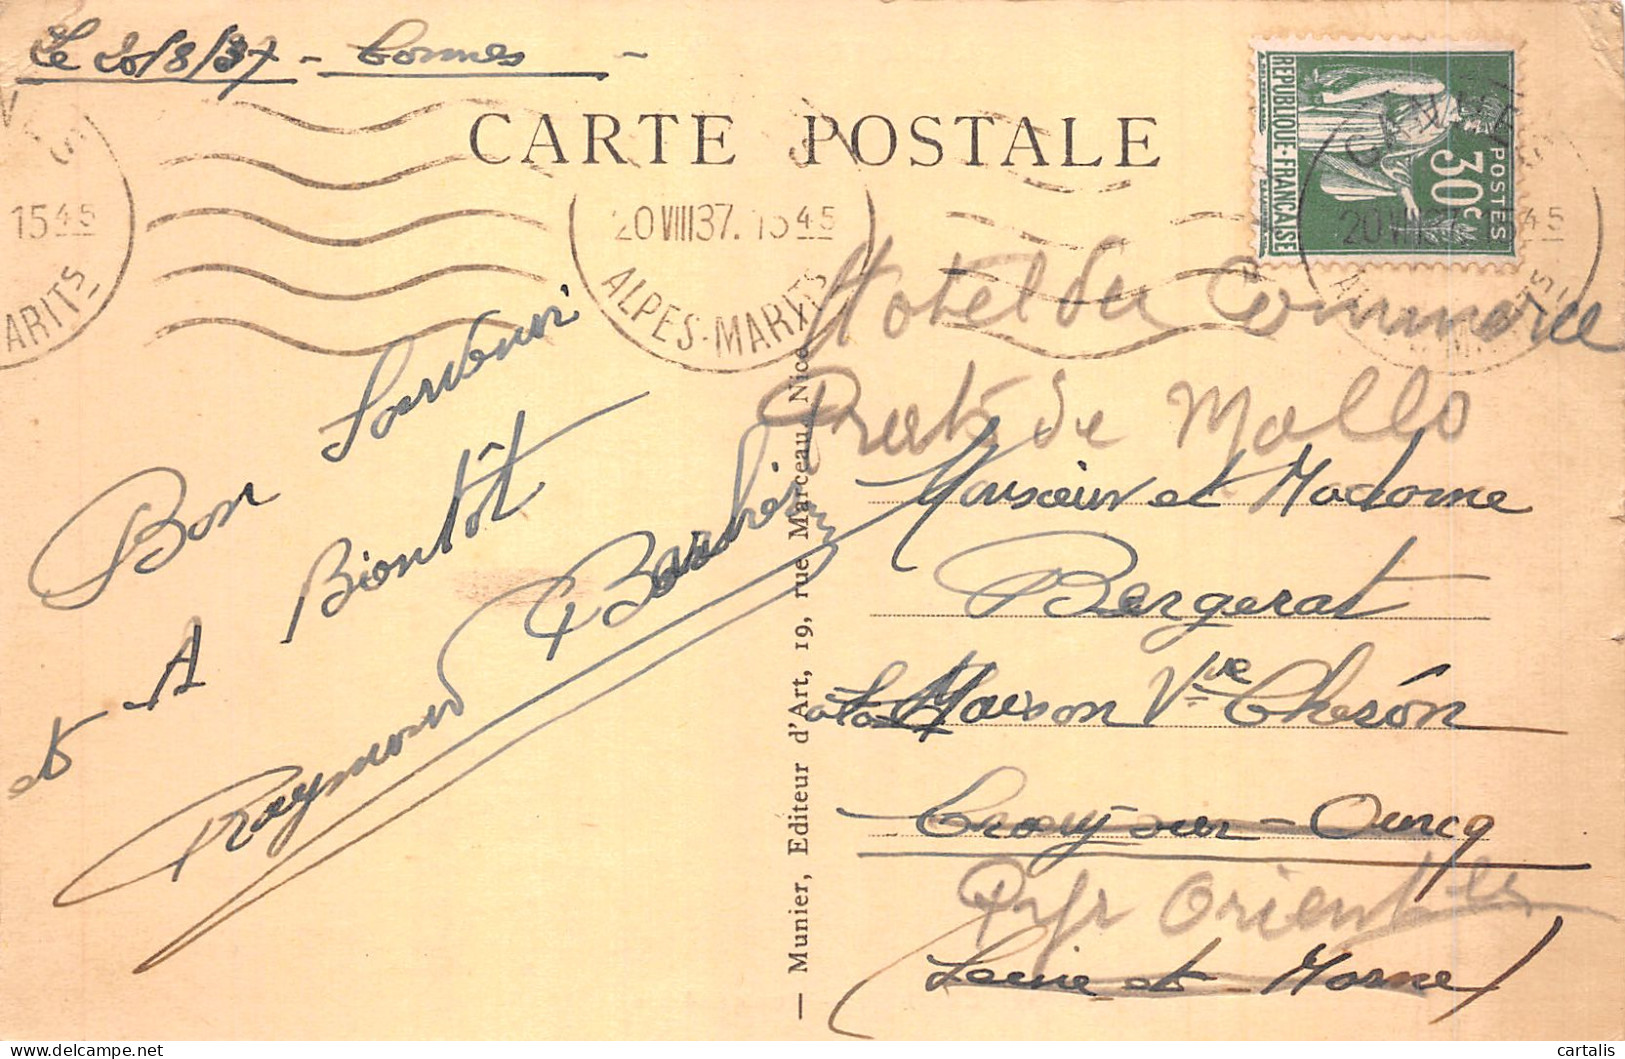 Le 20/8/37 - Cannes -
CARTE POSTALE
REPUBLIQUE·FRANÇAISE
POSTES
30c
CANNES
20 VIII 37. 15 45
ALPES-MARITS
15 45
ARITS
20 VIII 37. 15 45
ALPES-MARITS
Bon Souvenir
et A Bientôt
Raymond
— Munier, Editeur d'Art, 19, rue Marceau, Nice
Hotel du Commerce
Prats de Mollo
Monsieur et Madame
Bergerat
Maison Vve Chésón
Crouy-sur-Ourcq
Pyr Orientles
(Seine et Marne)
cartalis